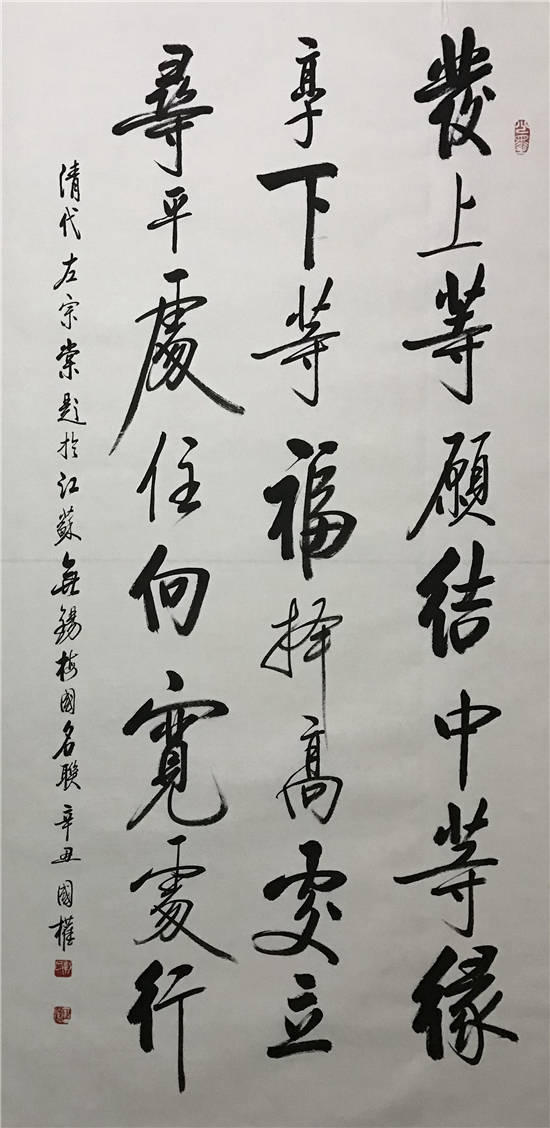 發上等願結中等緣
享下等福择高處立
尋平處住向寬處行
清代左宗棠題於江蘇無錫梅園名聯辛丑國權